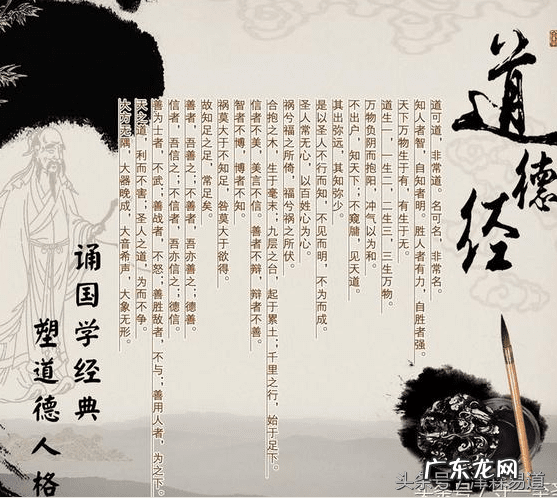 道德经
道可道，非常道。名可名，非常名。
知人者智，自知者明。胜人者有力，自胜者强。
天下万物生于有，有生于无。
道生一，一生二，二生三，三生万物。
万物负阴而抱阳，冲气以为和。
不出户，知天下，不窥牖，见天道。
其出弥远，其知弥少。
是以圣人不行而知，不见而明，不为而成。
圣人常无心，以百姓心为心。
祸兮福之所倚，福兮祸之所伏。
合抱之木，生于毫末；九层之台，起于累土；千里之行，始于足下。
信者不美，美言不信。善者不辩，辩者不善。
智者不博，博者不知。
祸莫大于不知足，咎莫大于欲得。
故知足之足，常足矣。
善者，吾善之；不善者，吾亦善之；德善。
信者，吾信之；不信者，吾亦信之；德信。
善为士者，不武；善战者，不怒；善胜敌者，不与；善用人者，为之下。
天之道，利而不害；圣人之道，为而不争。
大方无隅，大器晚成，大音希声，大象无形。
诵国学经典
塑道德人格
广东龙网